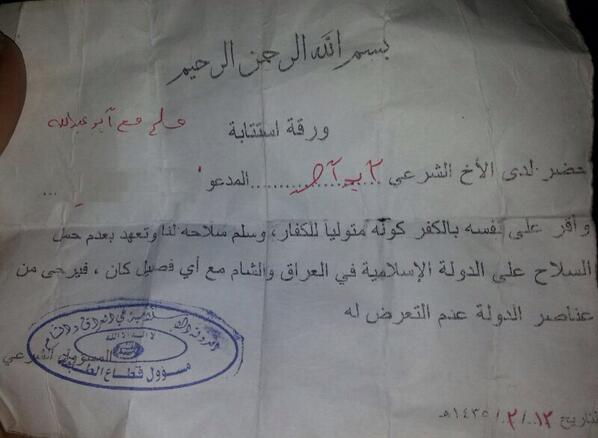 بسم الله الرحمن الرحيم
ورقة استتابة
حضر لدى الأخ الشرعي ................ المدعو ...
وأقر على نفسه بالكفر كونه متولياً للكفار، وسلم سلاحه لنا وتعهد بعدم حمل
السلاح على الدولة الإسلامية في العراق والشام مع أي فصيل كان ، فيرجى من
عناصر الدولة عدم التعرض له
المسؤول الشرعي
لا اله الا الله
مسؤول قطاع
بتاريخ ١٣/.٢/.١٤٣٥هـ